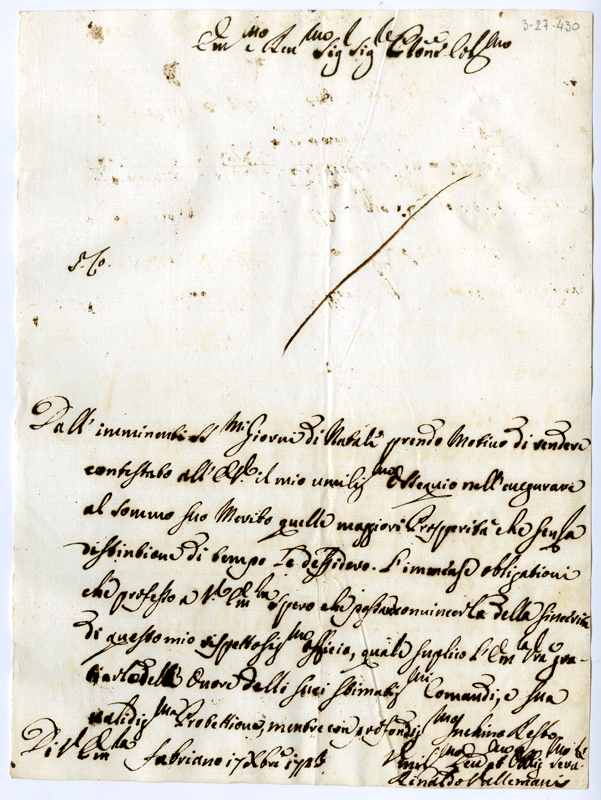 3-27-430
Em.mo e Rev.mo Sig.r Sig.re P.rone Col.mo
S. Co.
Dall' imminentiss.mi Giorni di Natale prendo Motivo di rendere
contestato all' E.V. il mio umiliss.mo Ossequio nell' augurare
al sommo suo Merito quelle maggiori Prosperità che senza
distintione di tempo Le desidero. L'immense obligationi
che professo a V. Em.za spero che possa convincerla della sincerità
di questo mio rispettosiss.mo officio, quale suplico l'Em.za Vra gra-
tiarlo dell' Onore delli suoi stimatiss.mi Comandi, e sua
validiss.ma Protettione, mentre con profondiss.mo inchino Resto
Di V. Em.za
Fabriano 17 Xbre
Umil.mo Dev.mo et Oblig.mo Serv.re
Rinaldo Vallemani